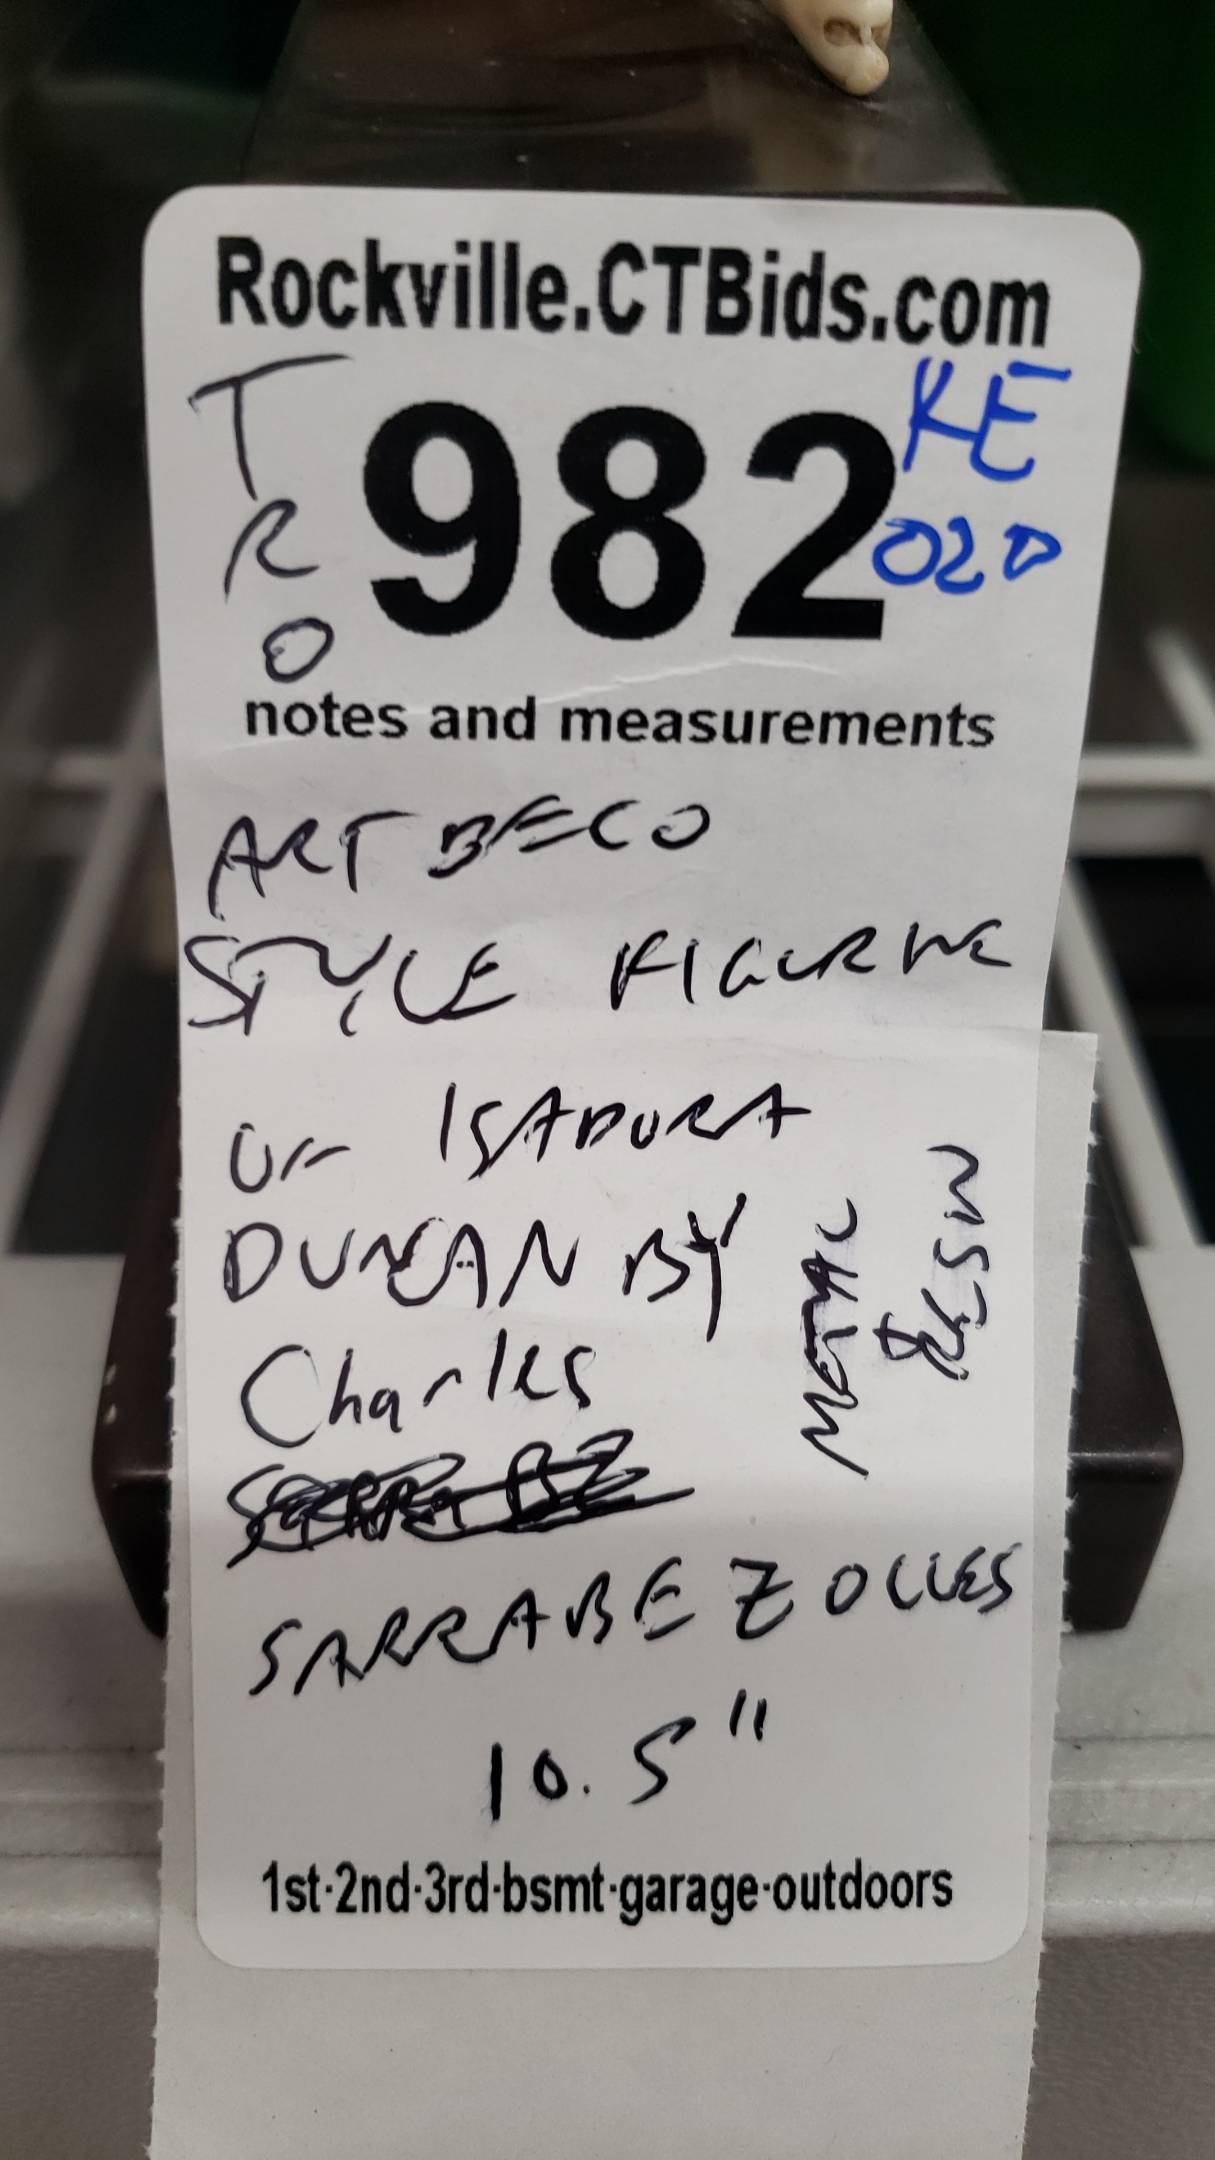 Rockville.CTBids.com
TRO
982
KE
020
notes and measurements
ART DECO
STYLE FIGURINE
OF ISADORA
DUNCAN BY
Charles
SARRABEZOLLES
10.5"
METAL
& RESIN
1st·2nd·3rd·bsmt·garage·outdoors